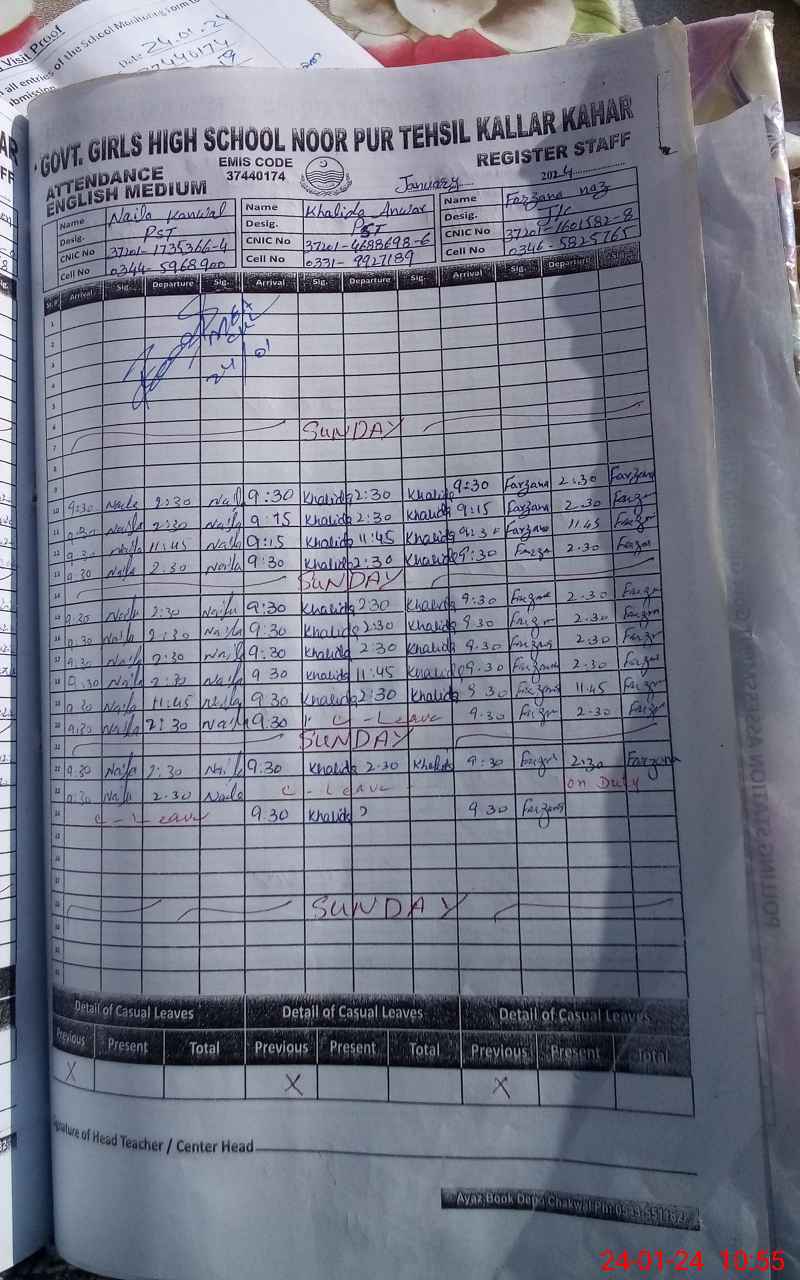 Visit Proof
all entries of the School Monitoring Form to
Date: 24.01.24
37440174
GOVT. GIRLS HIGH SCHOOL NOOR PUR TEHSIL KALLAR KAHAR
ATTENDANCE EMIS CODE REGISTER STAFF
ENGLISH MEDIUM 37440174 January 2024
Name Naila Kanwal Name Khalida Anwar Name Farzana naz
Desig. PST Desig. PST Desig.
CNIC No 37201-1735366-4 CNIC No 37201-4688698-6 CNIC No 37201-1601582-8
Cell No 0344-5968900 Cell No 0331-9927189 Cell No 0346-5825765
Sr.# Arrival Sig. Departure Sig. Arrival Sig. Departure Sig. Arrival Sig. Departure Sig.
1
2
3 24/01
4
5
6
7 SUNDAY
8
9
10 9:30 Naila 2:30 Naila 9:30 Khalida 2:30 Khalida 9:30 Farzana 2:30 Farzana
11 9:30 Naila 2:30 Naila 9:15 Khalida 2:30 Khalida 9:15 Farzana 2.30 Farzan
12 9:30 Naila 11:45 Naila 9:15 Khalida 11:45 Khalida Farzana 11.45 Farzan
13 9:30 Naila 2:30 Naila 9:30 Khalida 2:30 Khalida 9:30 Farzan 2.30 Farzan
14 SUNDAY
15 9:30 Naila 2:30 Naila 9:30 Khalida 2:30 Khalida 9.30 Farzana 2.30 Farzan
16 9.30 Naila 2:30 Naila 9:30 Khalida 2:30 Khalida 9.30 Farzan 2.30 Farzan
17 9:30 Naila 2:30 Naila 9:30 Khalida 2:30 Khalida 9.30 Farzana 2:30 Farzan
18 9:30 Naila 2:30 Naila 9 30 Khalida 11:45 Khalida 9.30 Farzana 2.30 Farzan
19 9:30 Naila 11:45 Naila 9:30 Khalida 2:30 Khalida 9 30 Farzana 11.45 Farzan
20 9:30 Naila 2:30 Naila 9:30 C-Leave 9.30 Farzan 2.30 Farzan
21 SUNDAY
22 9.30 Naila 2:30 Naila 9:30 Khalida 2.30 Khalida 9:30 Farzan 2:30 Farzana
23 9:30 Naila 2.30 Naila C-Leave on Duty
24 C-Leave 9.30 Khalida ? 9.30 Farzana
25
26
27
28 SUNDAY
29
30
31
Detail of Casual Leaves Detail of Casual Leaves Detail of Casual Leaves
Previous Present Total Previous Present Total Previous Present Total
X X X
Signature of Head Teacher / Center Head
Ayaz Book Depo Chakwal Ph:
POLLING STATION ASSESSMENT
24-01-24 10:55